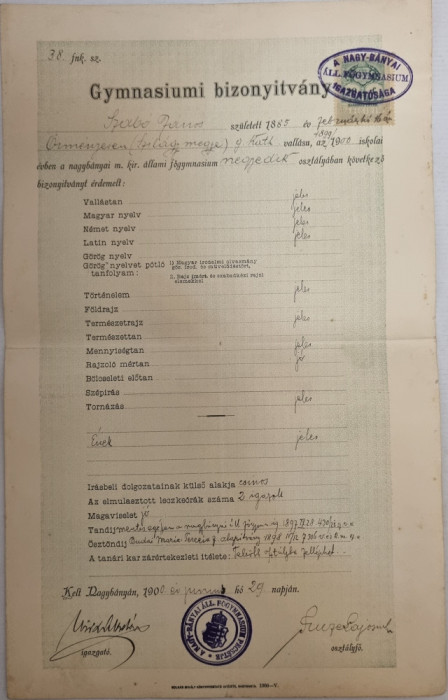 38. jnk. sz.
A NAGY-BÁNYAI
ÁLL. FŐGYMNASIUM
IGAZGATÓSÁGA
Gymnasiumi bizonyitvány
Szabo János született 1885 év
(Szilágy megye) g. Kath. vallásu, az 1899/1900 iskolai
évben a nagybányai m. kir. állami főgymnasium negyedik osztályában következő
bizonyitványt érdemelt:
Vallástan jeles
Magyar nyelv jeles
Német nyelv jeles
Latin nyelv jeles
Görög nyelv
Görög nyelvet pótló
tanfolyam:
1) Magyar irodalmi olvasmány
gör. irod. és müvelődéstört.
2. Rajz mért. és szabadkézi rajzi
elemekkel
Történelem jeles
Földrajz
Természetrajz jeles
Természettan
Mennyiségtan jeles
Rajzoló mértan jó
Bölcseleti előtan
Szépírás jeles
Tornázás jeles
Ének jeles
Irásbeli dolgozatainak külső alakja csinos
Az elmulasztott leczkeórák száma 2 igazolt
Magaviselet jó
Tandíj mentes egészen a nagybányai áll. főgymn. ig. 1897
Ösztöndíj Mária Terézia alapitvány 1898
A tanári kar zárértekezleti itélete: Felsőbb osztályba felléphet.
Kelt Nagybányán, 1900 évi junius hó 29 napján.
igazgató.
A NAGY-BÁNYAI ÁLL. FŐGYMNASIUM PECSÉTJE
osztályfő.